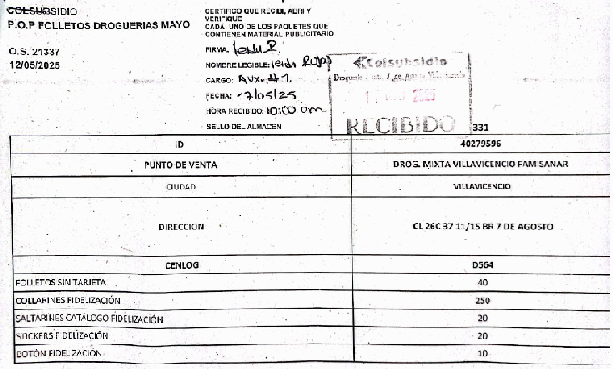 COLSUBSIDIO
P.O.P FOLLETOS DROGUERIAS MAYO
O.S. 21337
12/05/2025
CERTIFICO QUE RECIBI, ABRI Y
VERIFIQUE
CADA UNO DE LOS PAQUETES QUE
CONTIENEN MATERIAL PUBLICITARIO
FIRMA:
NOMBRE LEGIBLE:
CARGO: Aux. #1.
FECHA: /05/25
HORA RECIBIDO: 10:00 am
SELLO DEL ALMACEN
Colsubsidio
RECIBIDO
331
ID 40279596
PUNTO DE VENTA DROG. MIXTA VILLAVICENCIO FAMISANAR
CIUDAD VILLAVICENCIO
DIRECCION CL 26C 37 11/15 BR 7 DE AGOSTO
CENLOG D564
FOLLETOS SIN TARJETA 40
COLLARINES FIDELIZACIÓN 250
SALTARINES CATALOGO FIDELIZACIÓN 20
STICKERS FIDELIZACIÓN 20
BOTÓN FIDELIZACIÓN 10